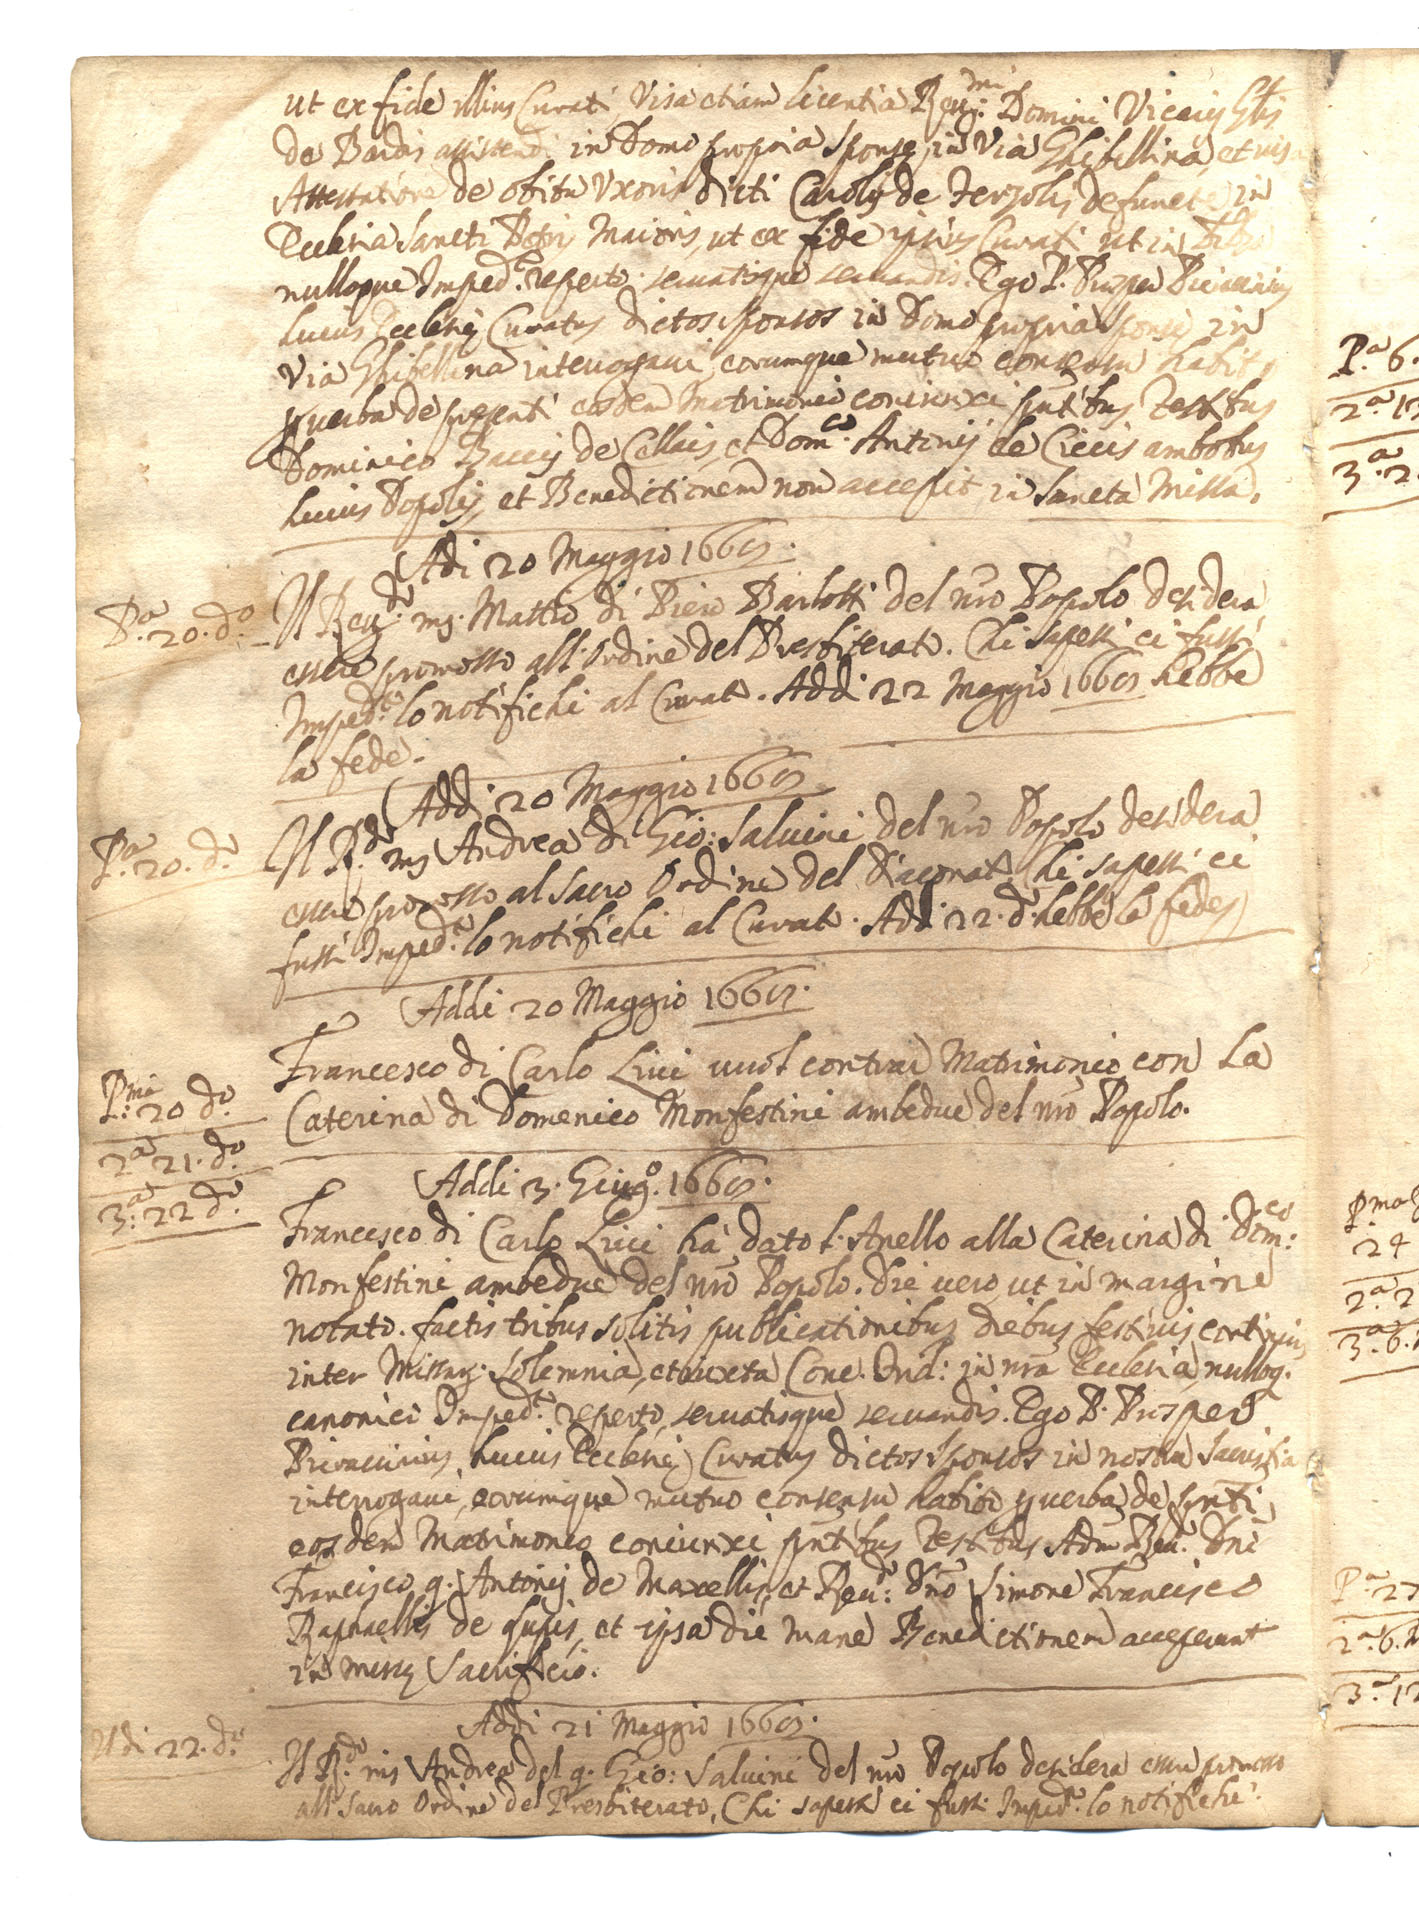 ut ex fide illius Curati, Visa etiam licentia Reu.mi Domini Vicarij
de Bardis assistendi in Domo propria Sponse in Via Ghibellina, et visa
Attestatione de obitu Uxoris dicti Caroli de defuncte in
Ecclesia Sancti Petri Maioris, ut ex fide ipsius Curati ut in
nulloque Imped.to reperto seruatisque seruandis. Ego P. Prosper
huius Ecclesie Curatus dictos sponsos in Domo propria sponse in
Via Ghibellina interrogaui, eorumque mutuo consensu habito
p verba de presenti eosdem Matrimonio coniunxi pntibus Testibus
Dominico de et Dom.co Antonij de Ciccis ambobus
huius Popoli, et Benedictionem non accepit in Sancta Missa.
Adi 20 Maggio 1660.
P.a 20. d.o
Il Reu.do ms. Mattio di Piero Barlotti del nro Popolo desidera
essere promosso all'Ordine del Presbiterato. Chi sapessi ci fussi
Imped.to lo notifichi al Curato. Addi 22 Maggio 1660 hebbe
la fede.
Addi 20 Maggio 1660
P.a 20. d.o
Il R.do ms Andrea di Gio: Saluini del nro Popolo desidera
essere promosso al Sacro Ordine del Diaconato chi sapessi ci
fussi Imped.to lo notifichi al Curato. Addi 22. d.o hebbe la fede
Addi 20 Maggio 1660.
Francesco di Carlo Lici vuol contrar Matrimonio con La
Caterina di Domenico Monfestini ambedue del nro Popolo.
P.ma 20 d.o
2.a 21. d.o
3.a 22 d.o
Addi 3. Giug.o 1660.
Francesco di Carlo Lici hà dato l'Anello alla Caterina di Dom.co
Monfestini ambedue del nro Popolo. Die vero ut in margine
notato. factis tribus solitis publicationibus diebus festiuis continuis
inter Missar. solemnia, et iuxta Conc. Trid: in nra Ecclesia, nulloq.
canonico Imped.to reperto, seruatisque seruandis. Ego P. Prosper
huius Ecclesie Curatus dictos Sponsos in nostra Sacristia
interrogaui, eorumque mutuo consensu habito p verba de pnti
eosdem Matrimonio coniunxi pntibus Testibus Adm Reu. Dni
Francisco q. Antonij de Marcellis, et Reu.do Dno Simone Francisco
Raphaellis de Lupis, et ipsa die mane Benedictionem acceperunt
in Misse Sacrificio.
Addi 21 Maggio 1660.
Adi 22. d.o
Il R.do ms Andrea del q. Gio: Saluini del nro Popolo desidera essere promosso
all' Sacro Ordine del Presbiterato, Chi sapessi ci fussi Imped.to lo notifichi.
P.a 6.
2.a
3.a 2
P.ma
24
2.a 2
3.a 6.
P.a 27
2.a 6.
3.a 12